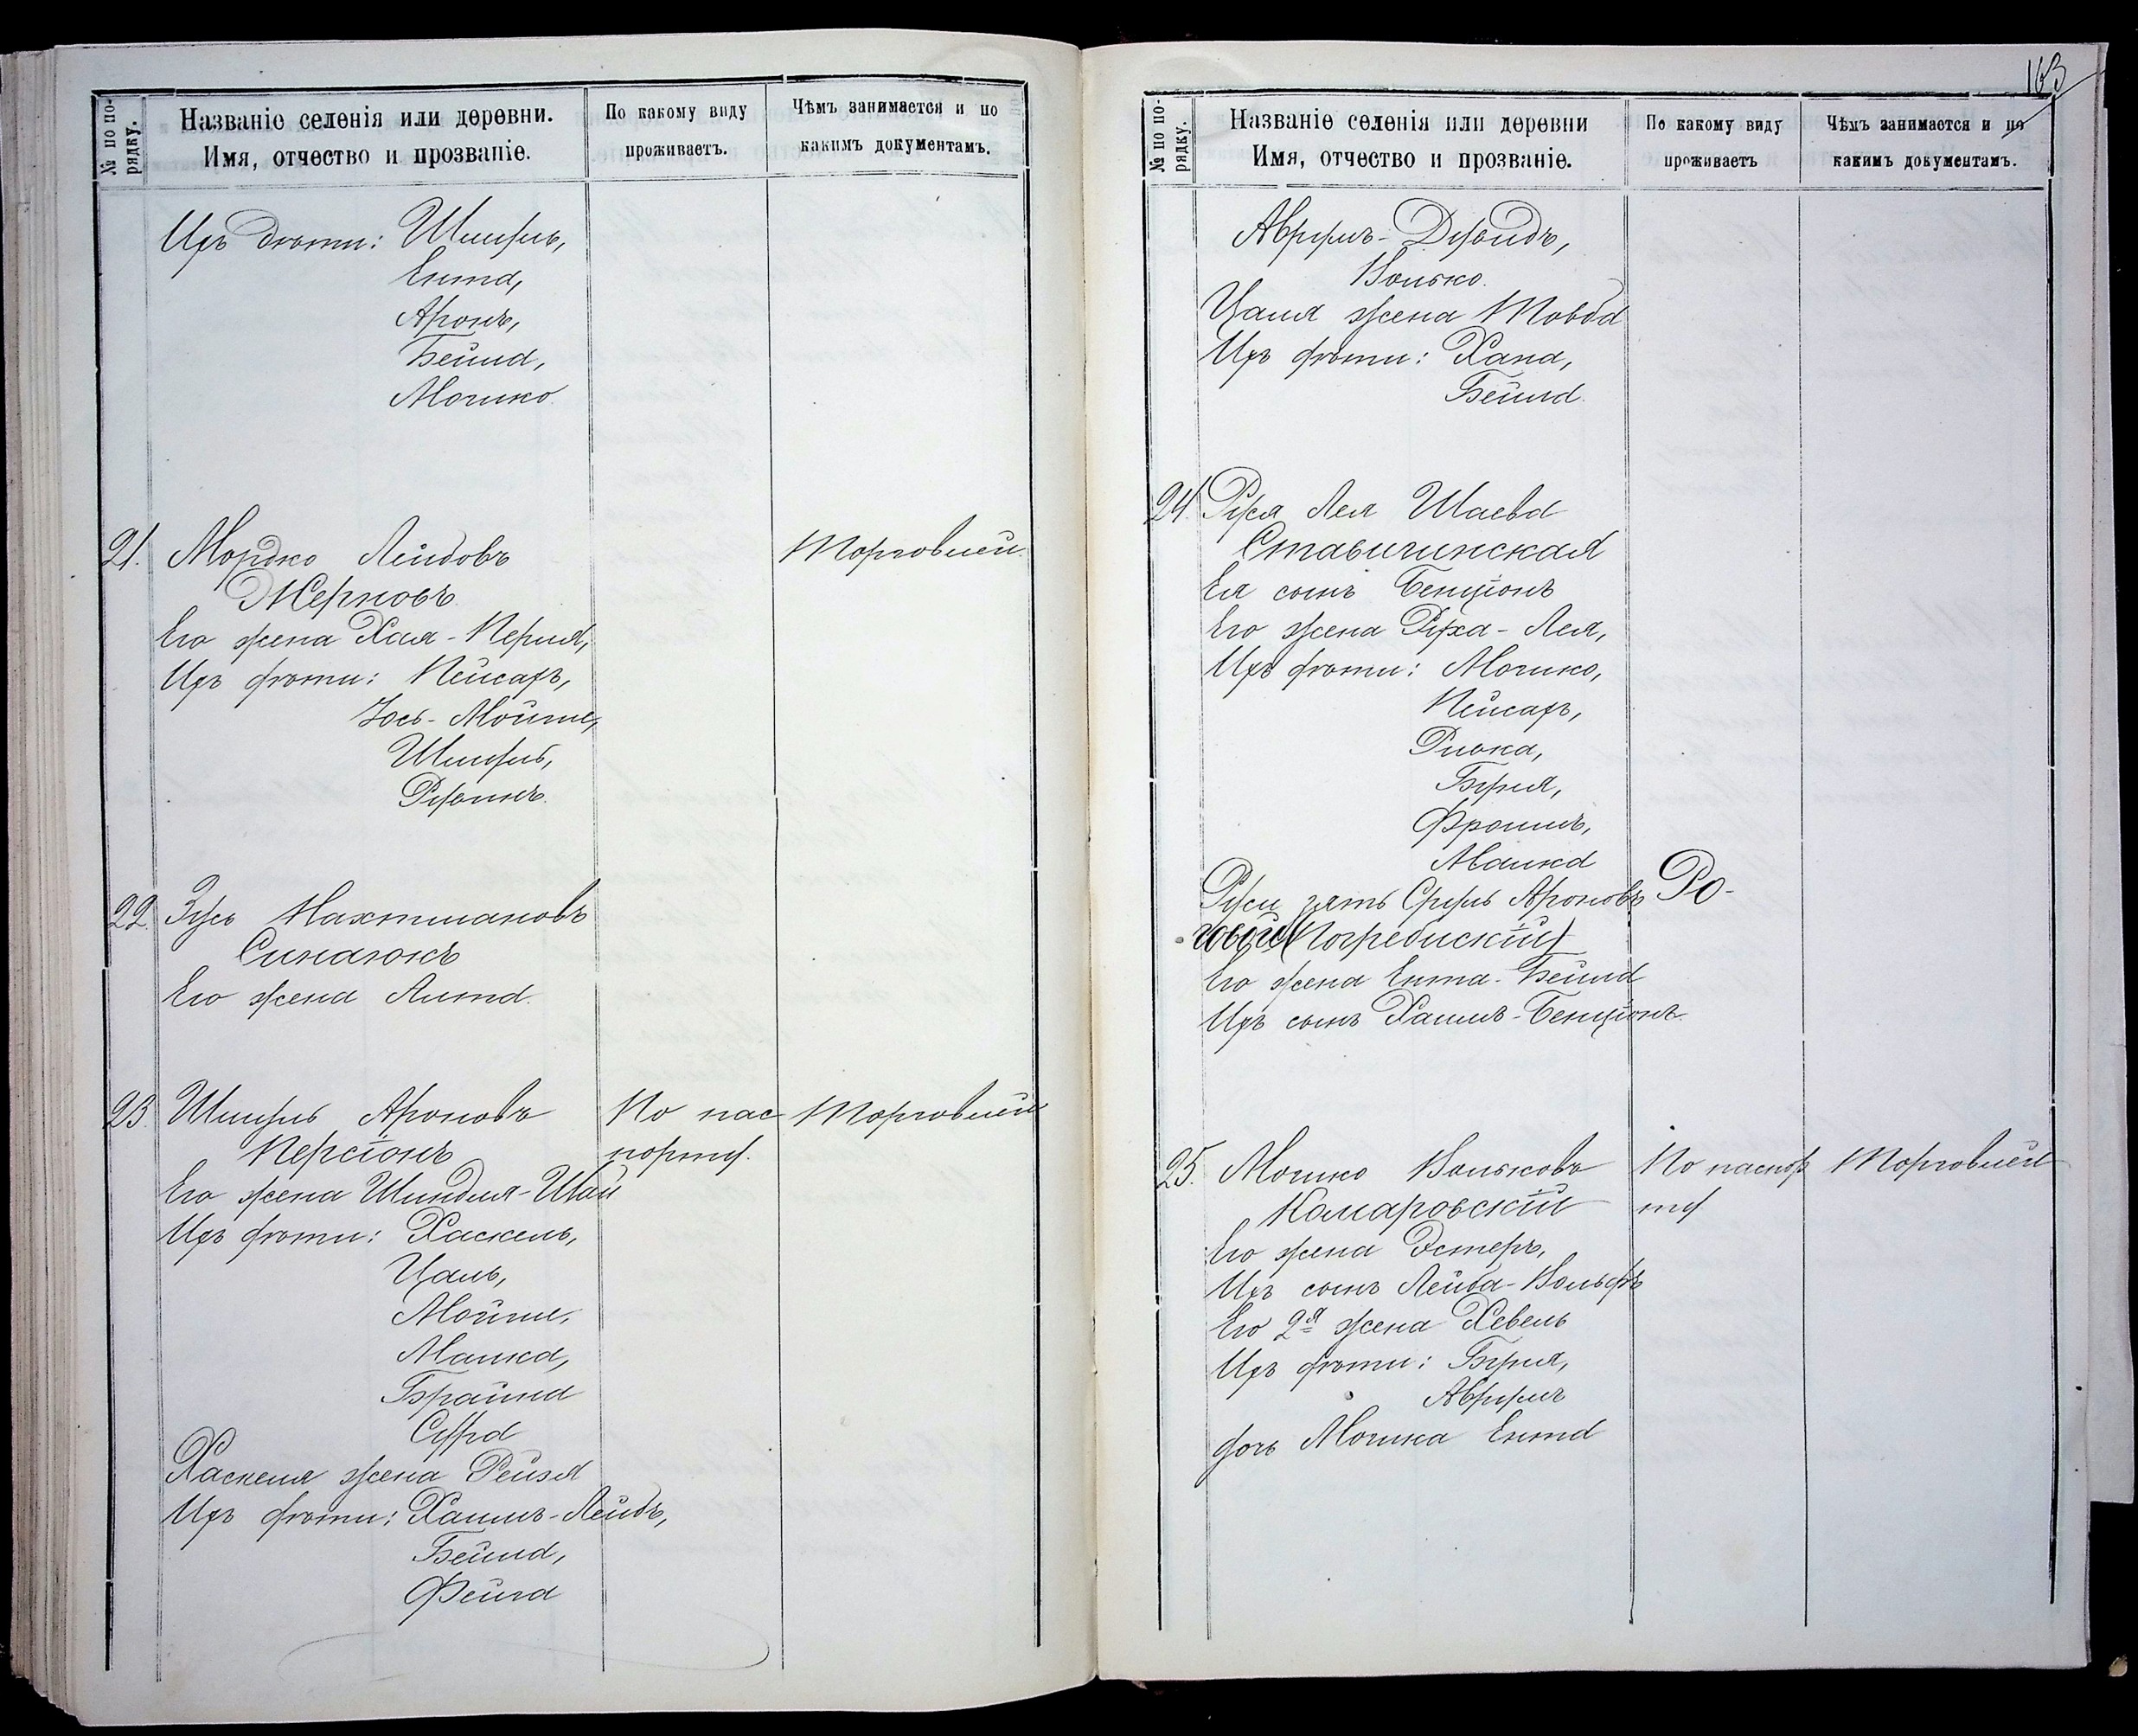 № по по-
рядку.
Названіе селенія или деревни.
Имя, отчество и прозваніе.
По какому виду
проживаетъ.
Чѣмъ занимается и по
какимъ документамъ.
Ихъ дѣти: Шмуль,
Ента,
Аронъ,
Бейла,
Мошко
21. Мордко Лейбовъ
Жерновъ
Его жена Хая-Перля,
Ихъ дѣти: Пейсахъ,
Іось-Мойше,
Шмуль,
Рувинъ.
Торговлей.
22. Зусь Нахтмановъ
Синанюкъ
Его жена Липа.
23. Шмуль Ароновъ
Персіонъ
Его жена Шиндля-Шай
Ихъ дѣти: Хаскель,
Цаль,
Мойше,
Малка,
Брайна
Сура
Хаскеля жена Рейзя
Ихъ дѣти: Хаимъ-Лейбъ,
Бейла,
Фейга
По пас
порту.
Торговлей
163
№ по по-
рядку.
Названіе селенія или деревни
Имя, отчество и прозваніе.
По какому виду
проживаетъ
Чѣмъ занимается и по
какимъ документамъ.
Аврумъ-Дувидъ,
Волько.
Цаля жена Товба
Ихъ дѣти: Хана,
Бейла.
24. Рухля Лея Шаева
Ставичинская
Ея сынъ Бенціонъ
Его жена Руха-Лея,
Ихъ дѣти: Мошко,
Пейсахъ,
Ривка,
Буня,
Фроимъ,
Малка
зять Сруль Ароновъ Ро-
(Погребискій)
Его жена Ента-Бейла
Ихъ сынъ Хаимъ-Бенціонъ.
25. Мошко Вольковъ
Комаровскій
Его жена Эстеръ,
Ихъ сынъ Лейба-Вольфъ
Его 2я жена Хевель
Ихъ дѣти: Буня,
Аврумъ
дочь Мошка Ента
По паспор
ту
Торговлей